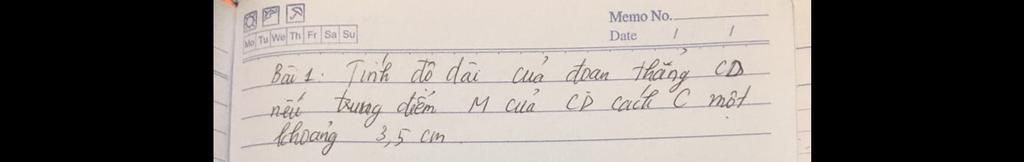 Memo No.
Mo Tu We Th Fr Sa Su
Date / /
Bài 1. Tính độ dài của đoạn thẳng CD
nếu trung điểm M của CD cách C một
khoảng 3,5 cm